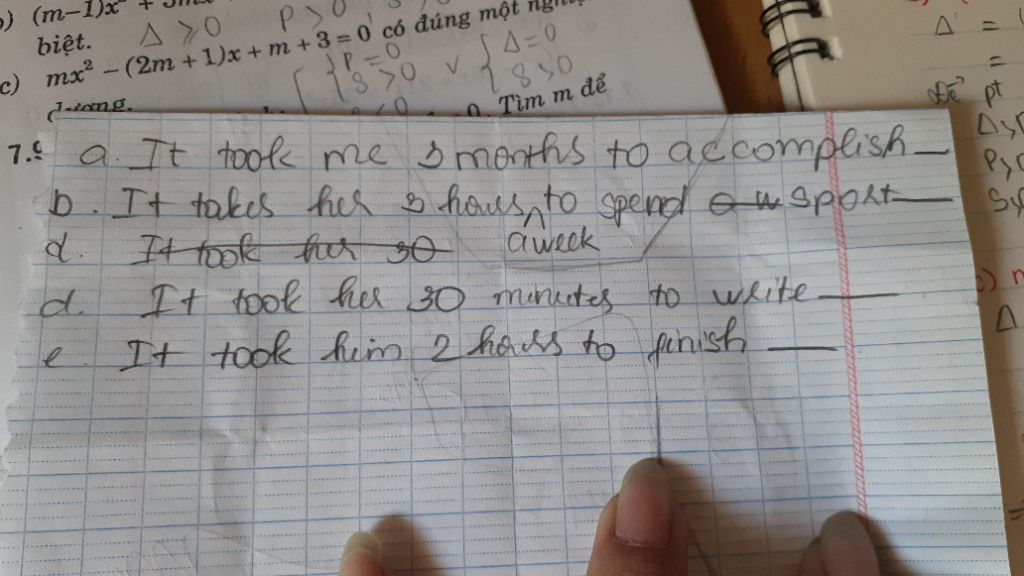 (m−1)x
biệt. Δ ⩾ 0 P > 0
c) mx² − (2m + 1)x + m + 3 = 0 có đúng một
{ P = 0 S > 0 v { Δ = 0 S > 0
Tìm m để
7.
a. It took me 3 months to accomplish —
b. It takes her 3 hours ^ to spend sport —
d. It took her 30 a week
d. It took her 30 minutes to write —
e. It took him 2 hours to finish —
Δ' =
=
Để pt
Δ